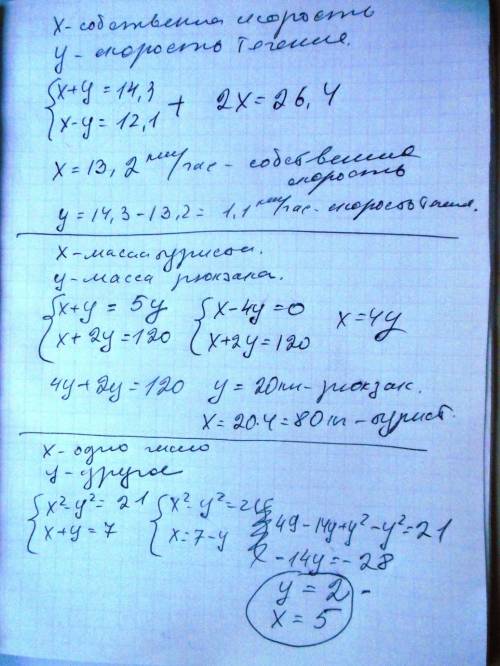 x - собственная скорость
y - скорость течения.
{x+y=14,3
{x-y=12,1 + 2x=26,4
x=13,2 км/час - собственная скорость
y=14,3-13,2= 1,1 км/час - скорость течения.
x - масса туриста.
y - масса рюкзака.
{x+y=5y {x-4y=0 x=4y
{x+2y=120 {x+2y=120
4y+2y=120 y=20кг - рюкзак.
x=20·4=80кг - турист.
x - одно число
y - другое
{x²-y²=21 {x²-y²=21
{x+y=7 {x=7-y 49-14y+y²-y²=21
-14y=-28
y=2
x=5